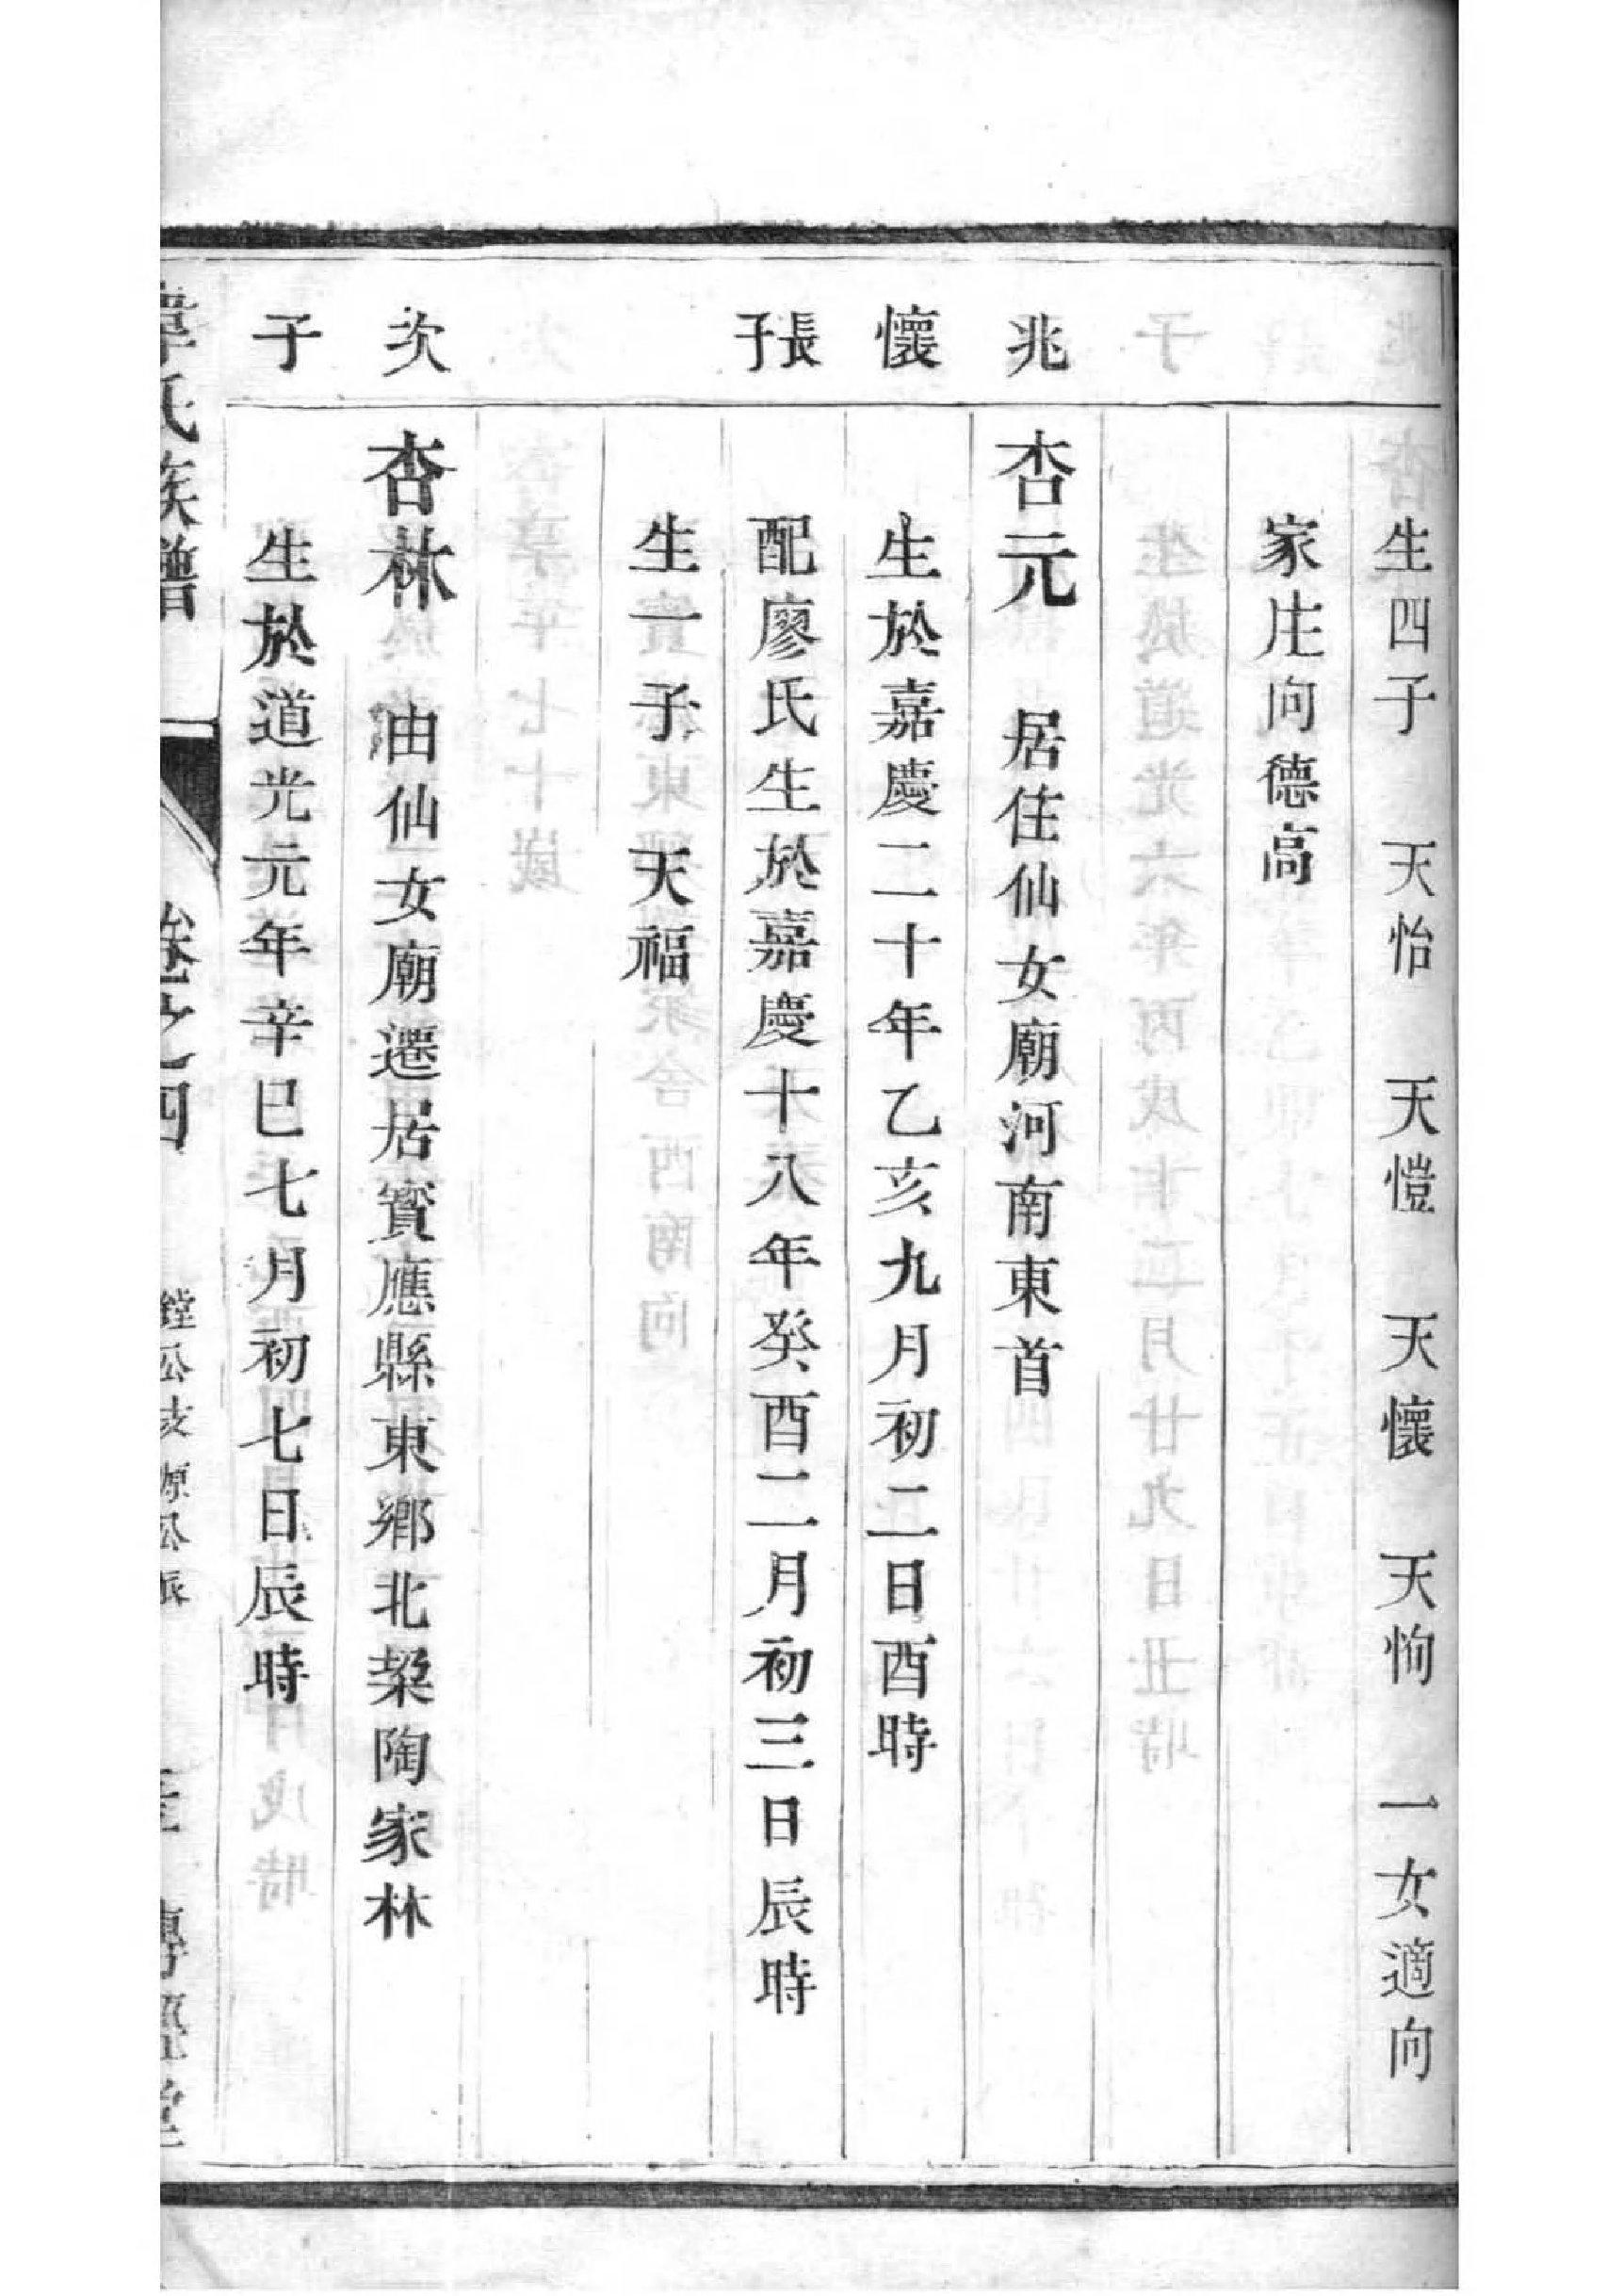 生四子　天怡　天愷　天懷　天恂　一女適向
家庄向德高
兆
杏元　居住仙女廟河南東首
懷
生於嘉慶二十年乙亥九月初二日酉時
張子
配廖氏生於嘉慶十八年癸酉二月初三日辰時
生一子　天福
次
杏林　由仙女廟遷居寳應縣東鄉北𣓨陶家林
子
生於道光元年辛巳七月初七日辰時
氏族譜
卷之四